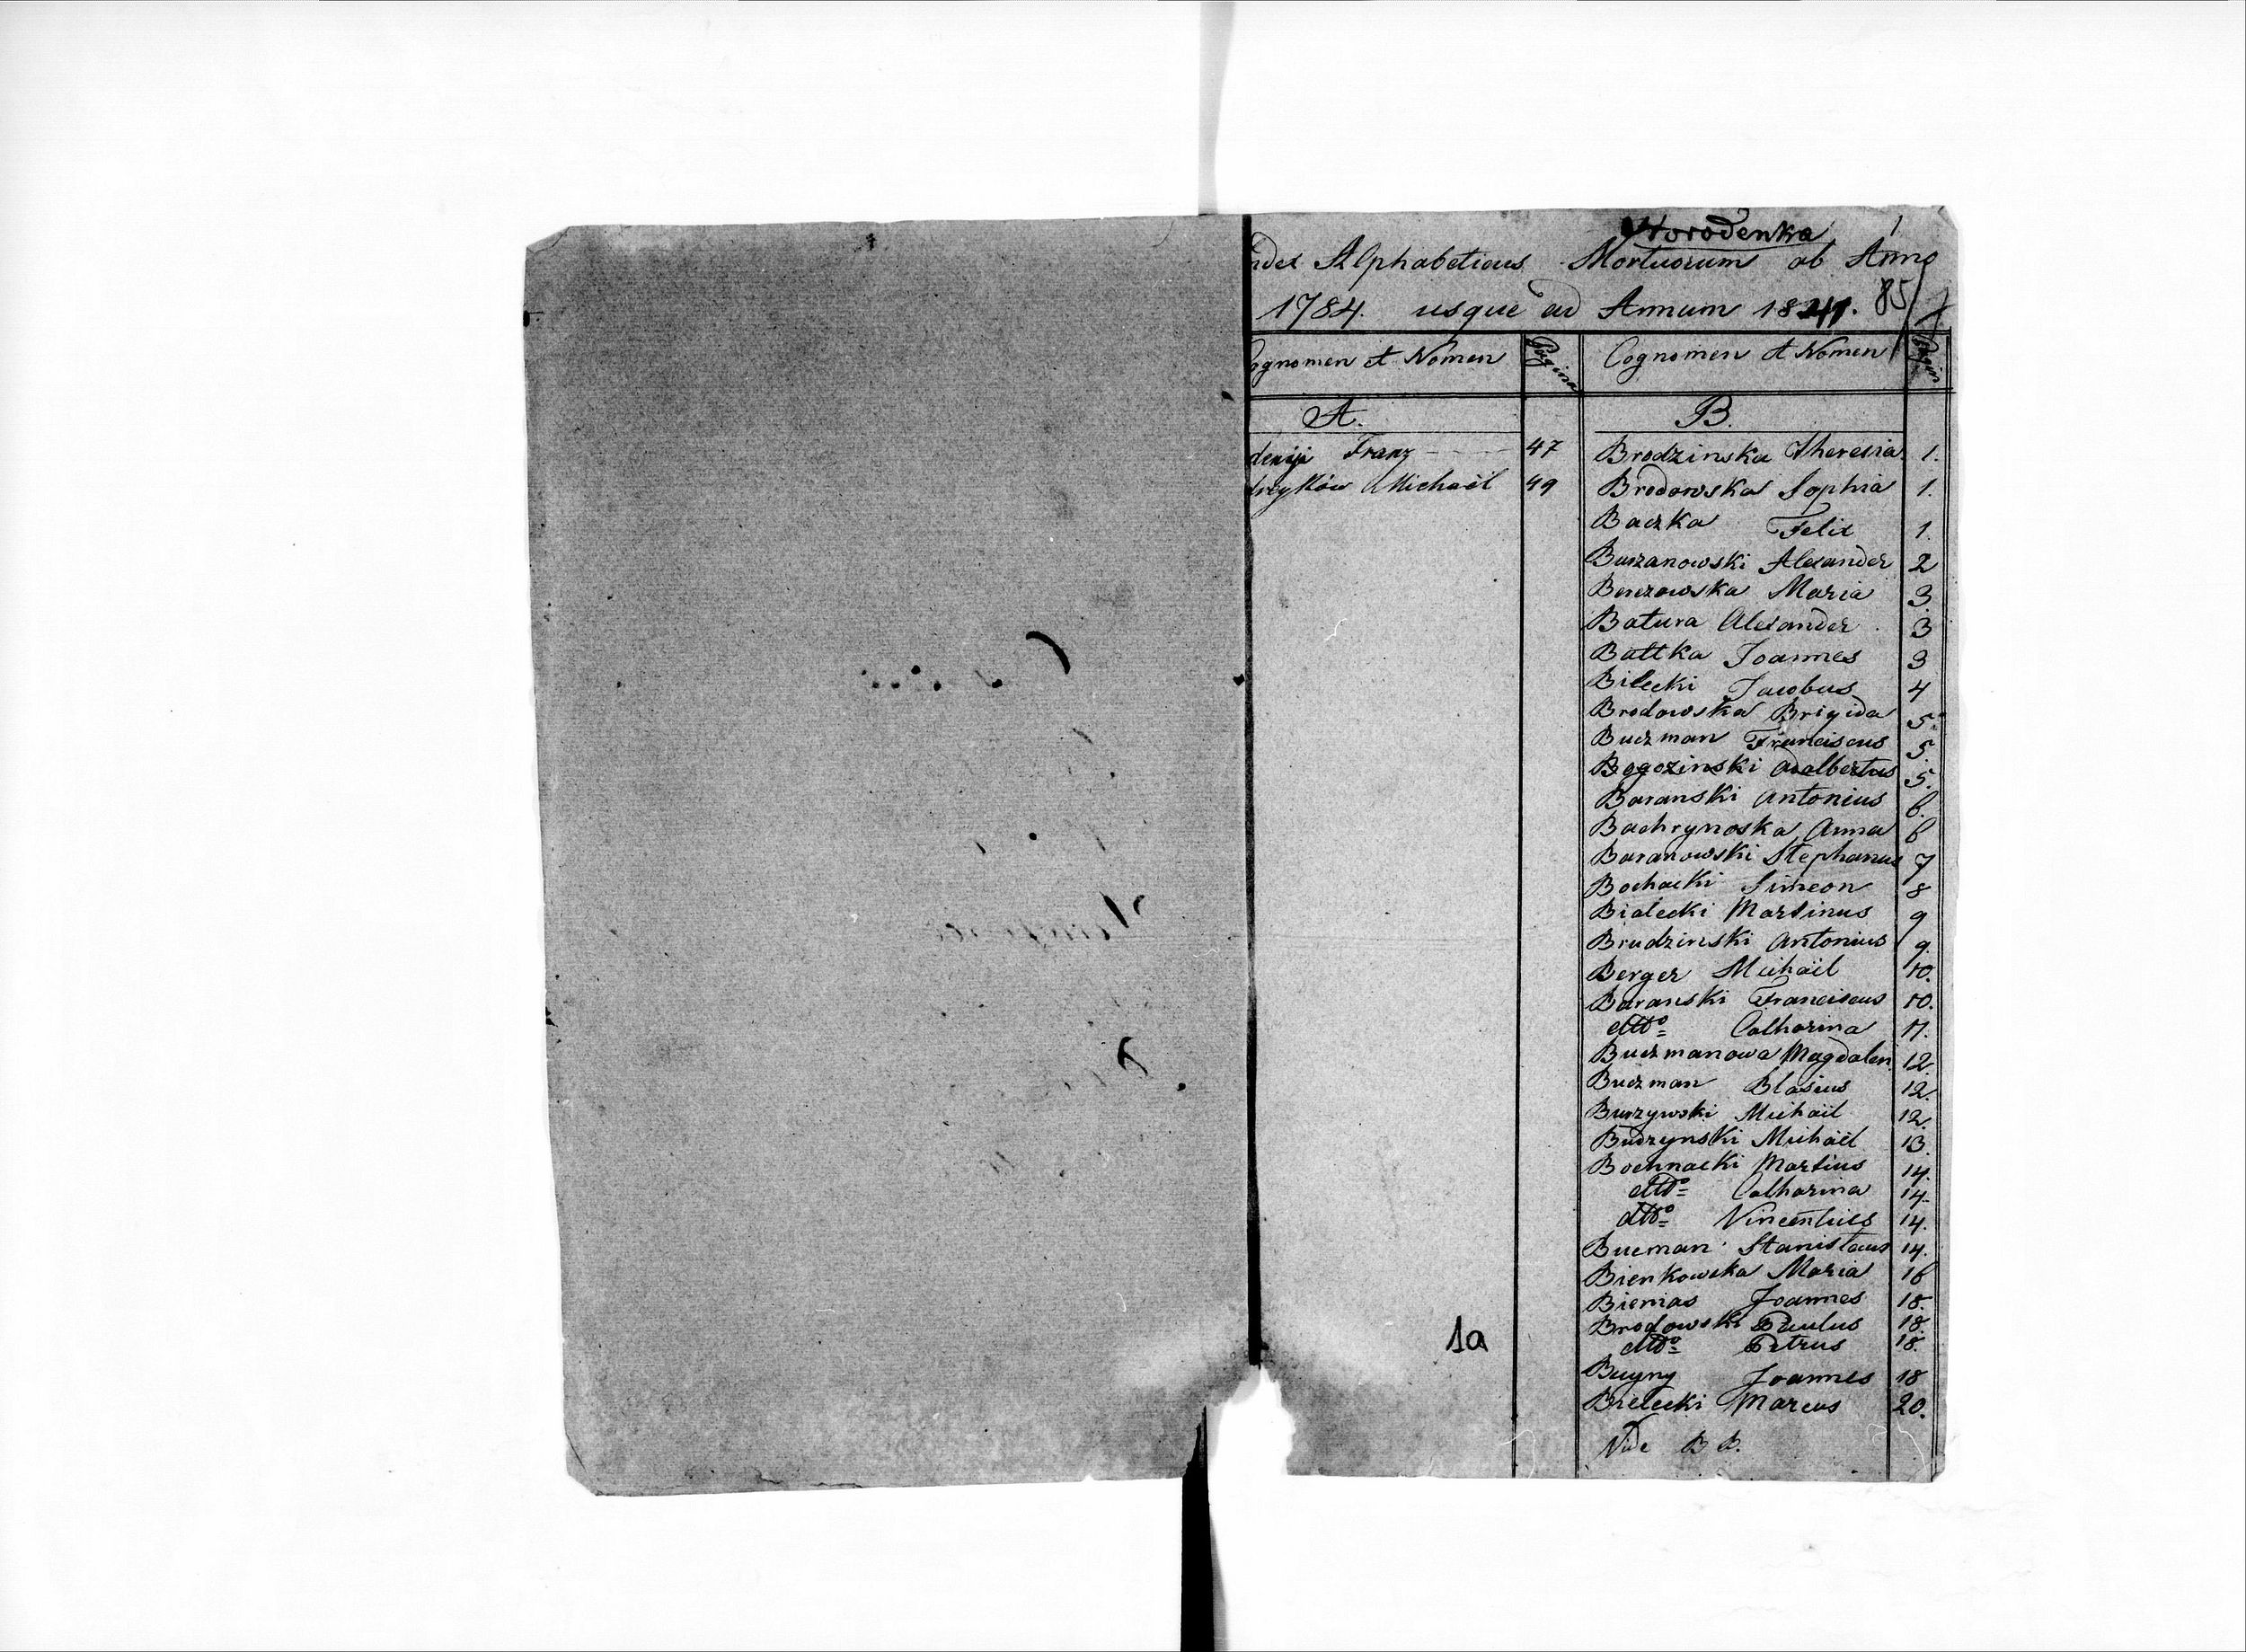 Horodenka 1
ndex Alphabeticus Mortuorum ab Anno
1784. usque ad Annum 1841. 85
ognomen et Nomen Pagina Cognomen et Nomen Pagin
A. B.
Franz 47 Brodzinska Theresia 1.
Michaël 49 Brodowska Sophia 1.
Baczka Felix 1.
Buczanowski Alexander 2
Berezowska Maria 3
Batura Alexander 3
Battka Joannes 3
Bilecki Jacobus 4
Brodowska Brigida 5.
Buczman Franciscus 5
Bogozinski Adalbertus 5.
Baranski Antonius 6.
Bachrynoska Anna 6
Baranowski Stephanus 7
Bochacki Simeon 8
Bialecki Martinus 9
Brudzinski Antonius 9.
Berger Michaël 10.
Baranski Franciscus 10.
detto Catharina 11.
Buczmanowa Magdalen 12.
Buczman Blasius 12.
Burzywski Michaël 12.
Budzynski Michaël 13.
Bochnacki Martius 14.
detto Catharina 14.
detto Vincentius 14.
Bucman Stanislaus 14.
Bienkowska Maria 16
Biernas Joannes 18.
Brodowski Paulus 18.
detto Petrus 18.
Buyny Joannes 18
Bielecki Marcus 20.
Vide BB.
1a